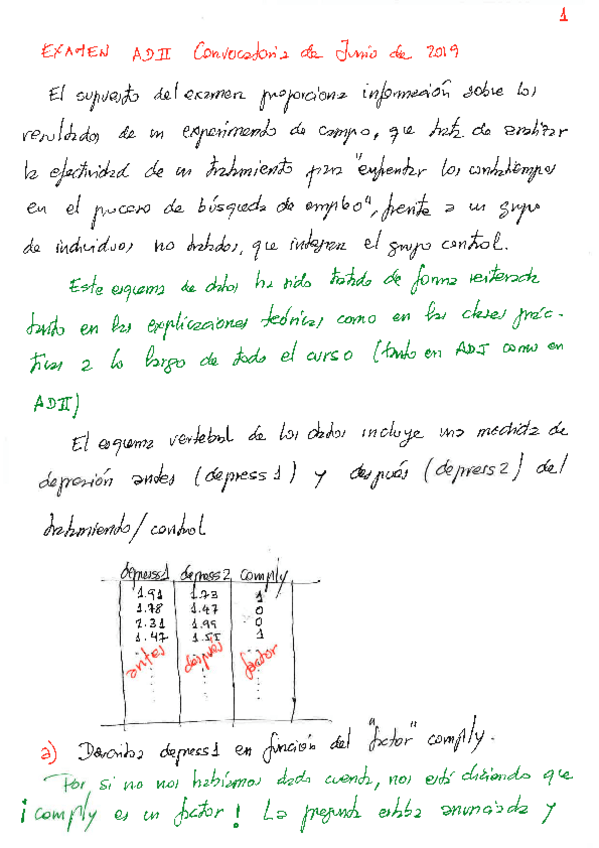 1
EXAMEN ADII Convocatoria de Junio de 2019
El supuesto del examen proporciona información sobre los
resultados de un experimento de campo, que trata de analizar
la efectividad de un tratamiento para "enfrentar los contratiempos
en el proceso de búsqueda de empleo", frente a un grupo
de individuos no tratados, que integran el grupo control.
Este esquema de datos ha sido tratado de forma reiterada
tanto en las explicaciones teóricas como en las clases prác-
ticas a lo largo de todo el curso (tanto en ADI como en
ADII)
El esquema vertebral de los datos incluye una medida de
depresión antes (depress1) y después (depress2) del
tratamiento/control
depress1 depress2 comply
1.91 1.73 1
1.78 1.47 0
2.31 1.99 0
1.47 1.55 1
antes después factor
a) Describa depress1 en función del "factor" comply.
Por si no nos habíamos dado cuenta, nos está diciendo que
¡comply es un factor! La pregunta estaba anunciada y